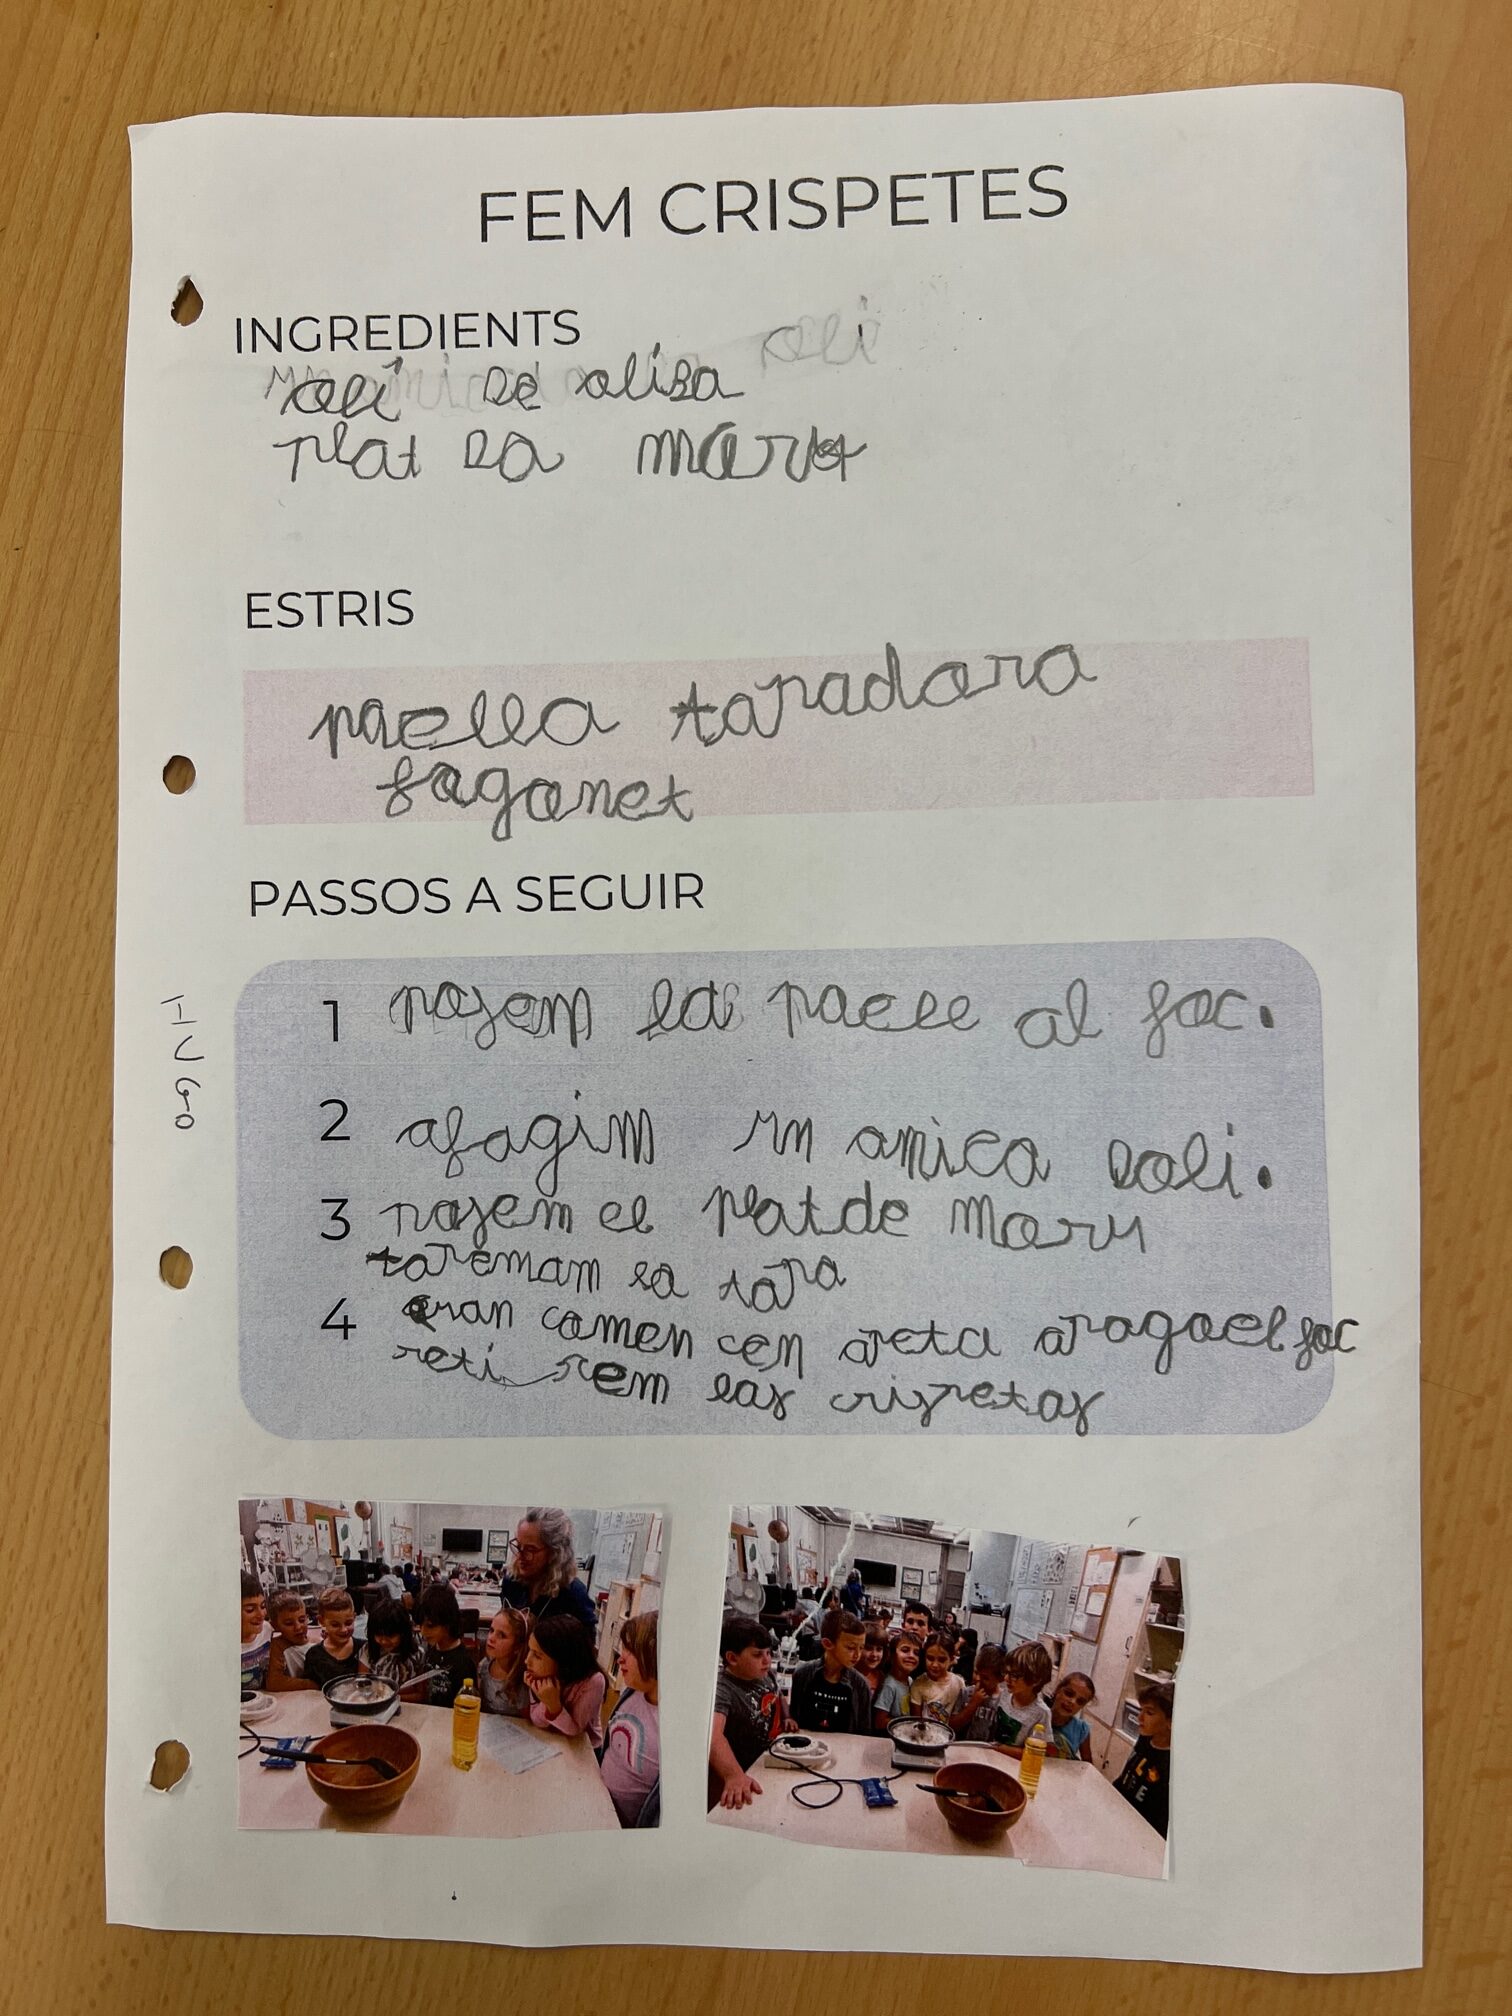 FEM CRISPETES
INGREDIENTS
oli
oli de oliba
plat da maru
ESTRIS
paella tapadora
fogonet
PASSOS A SEGUIR
1 posem la paell al foc.
2 afagim un amica doli.
3 posem el plat de moru
taremam la tapa
4 cuan comen cen apeta apagoel foc
reti rem las crispetas
HUGO